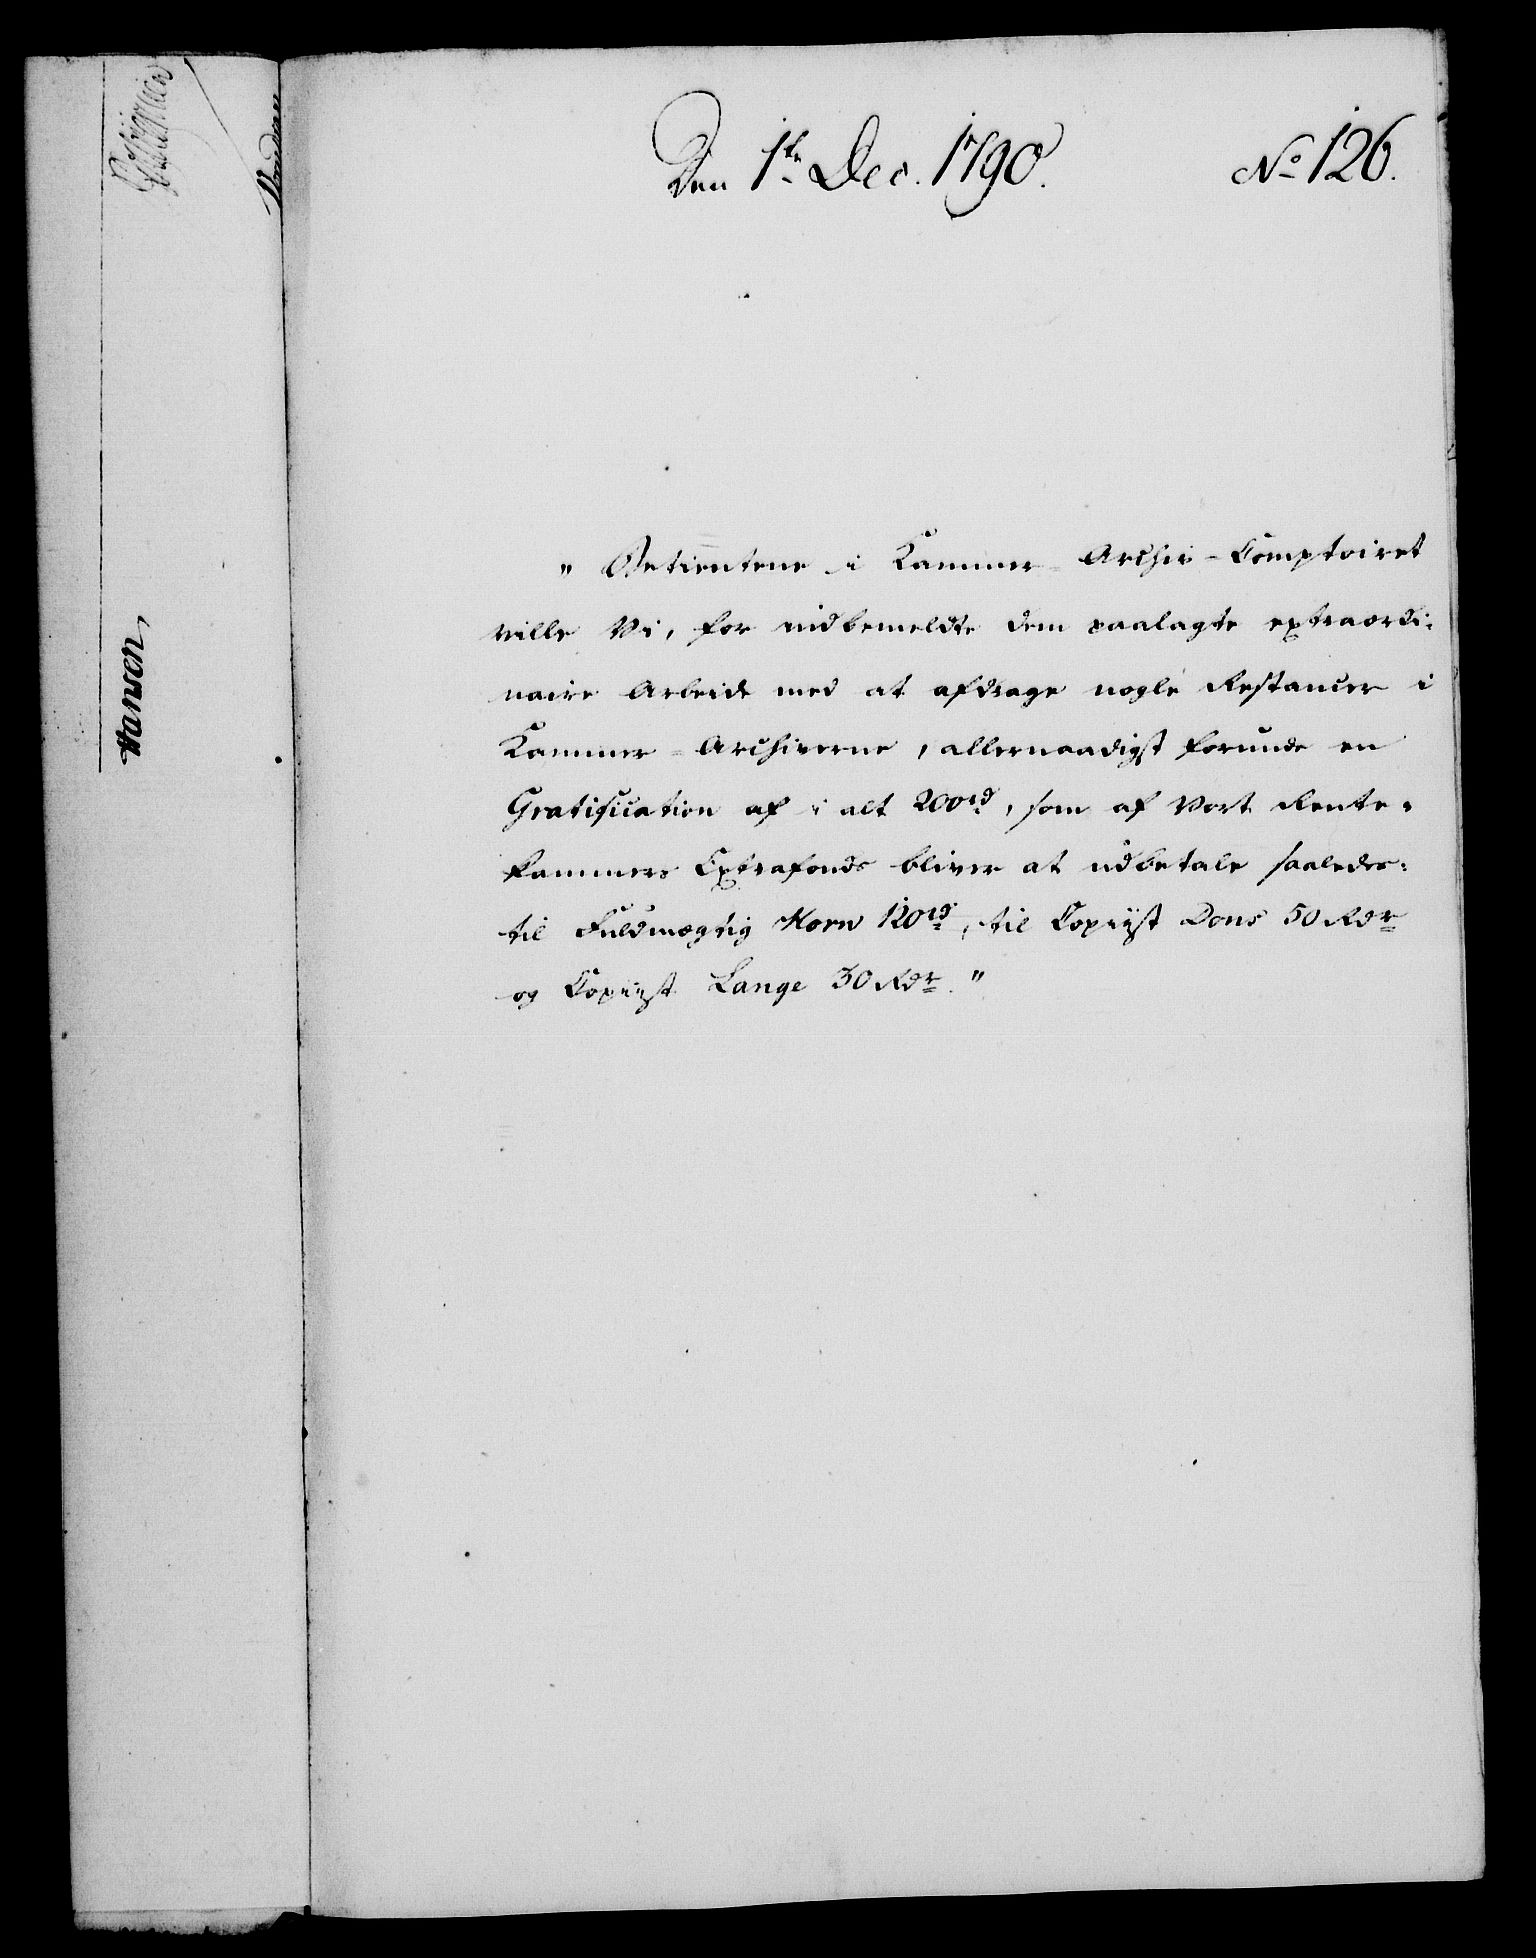 Den 1te Dec. 1790. No 126.
" Betientene i Kammer-Archiv-Comptoiret
ville Vi, for nidbemeldte dem paalagte extraordi-
naire Arbeide med at afdrage nogle Restancer i
Kammer-Archiverne, allernaadigst forunde en
Gratification af i alt 200rd, som af Vort Rente-
kammers Extrafonds bliver at udbetale saaledes:
til Fuldmægtig Korn 120rd, til Copiist Dons 50 Rdr
og Copiist Lange 30 Rdr."
Hansen,